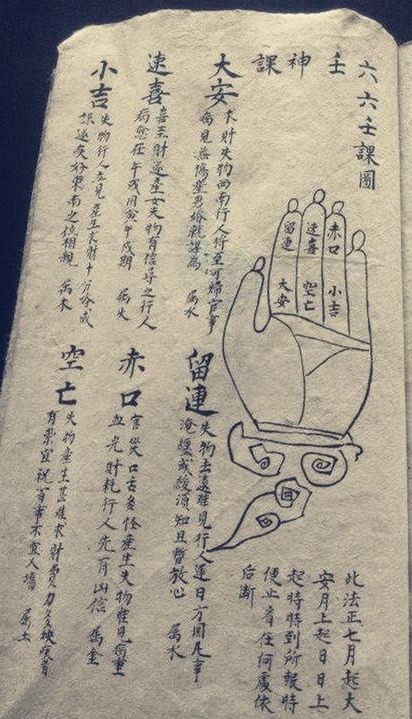 六六壬課圖
壬神課
赤口
速喜
留連
小吉
空亡
大安
此法正七月起大
安月上起日日上
起時時到所報時
便止看在何處依
后斷
大安
求財失物西南行人行至何婦官事
病見無傷產男婚就謀為 屬水
留連
失物去遠難見行人連日方回凡事
淹纏或緩須知且暫放心 屬水
速喜
喜至財產女失物有信尋之行人
病愈在午戌月寅午戌期 屬火
赤口
官災口舌多怪產生失物難見病重
血光財耗行人先有凶信 屬金
小吉
失物行人立見產生求財十分成
速疾好東南之位相親 屬木
空亡
失物產生甚難求財費力多疾者
有祟宜祝百事不宜人 屬土